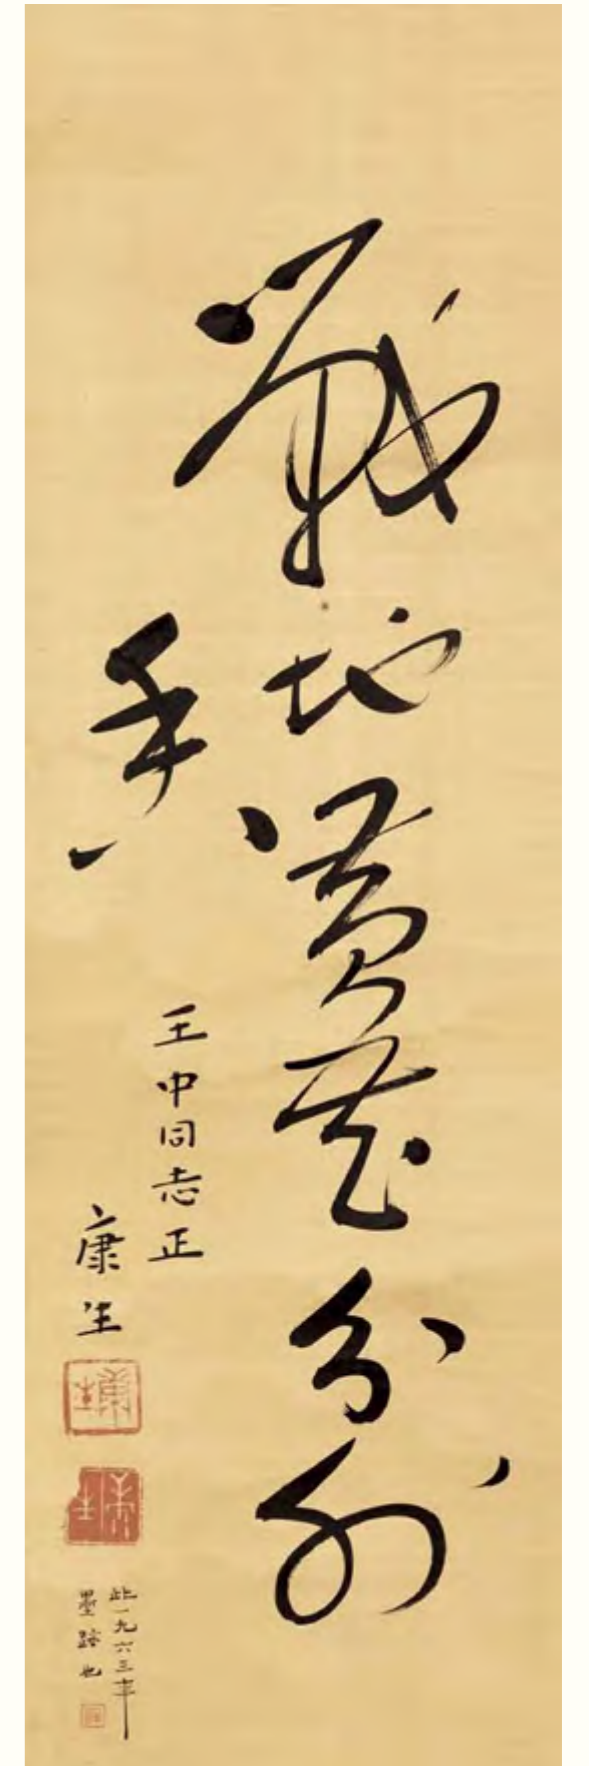 戰地黃花分外
香
王中同志正
康生
此一九六三年
墨跡也